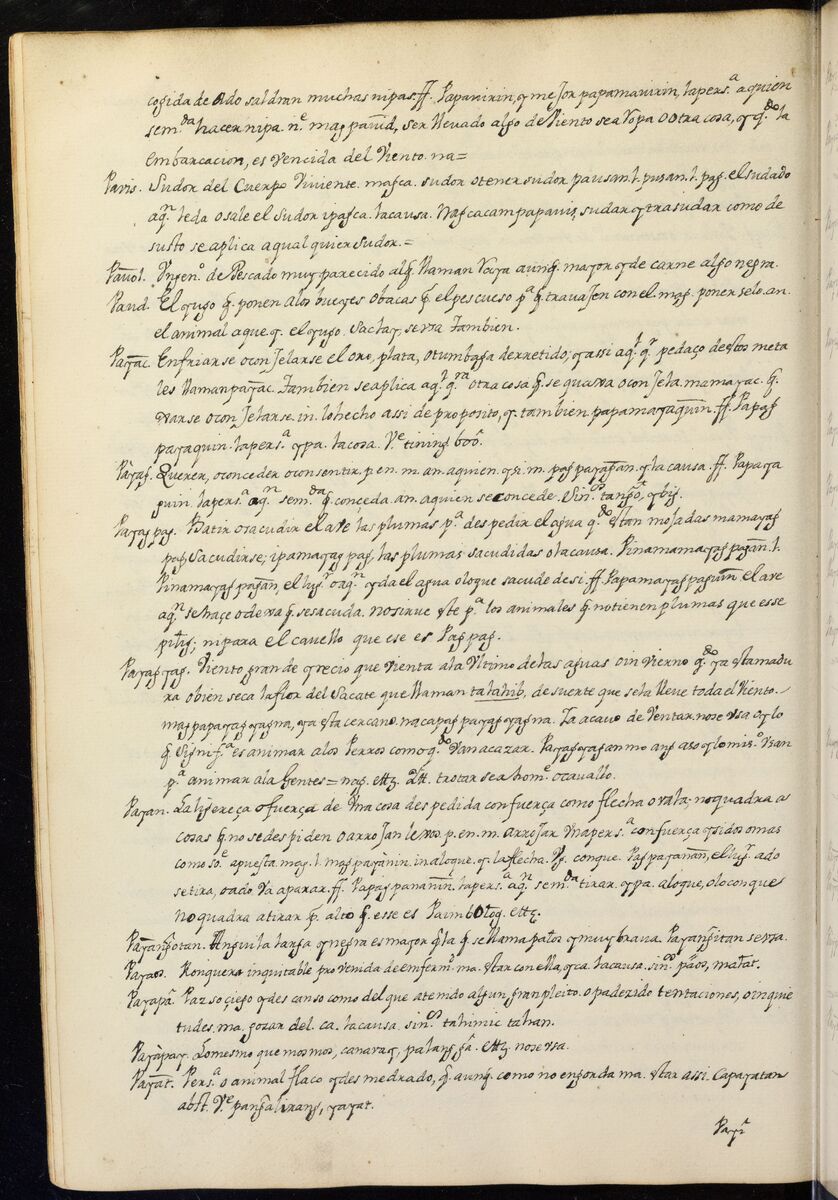 cogida de ado saldran muchas nipas. ff. Papanirin, y mejor papamanirin, la pers.ª a quien
sem.da hacer nipa. n.e mag panid, ser llevado algo de viento sea ropa o otra cosa, y q.do la
embarcacion, es vencida del viento. na=
Paris. Sudor del Cuerpo viviente. magca. sudor o tener sudor pausan. l. pusan. l. pag. el sudado
aq.n le da o sale el sudor ipagca. la causa. Nagcacam papanis, sudar y trasudar como de
susto se aplica a qual quier sudor.=
Pauol. Vn gen.o de Pescado muy parecido al q. llaman Voya aunq. mayor y de carne algo negra.
Paud. El yugo q. ponen a los bueyes o bacas en el pescueso p.ª q. travajen con el. mag. ponerselo. an.
el animal a que. y. el yugo. Sacley serva tambien.
Payac. Enfriarse o conjelarse el oro, plata, o tumbaga derretido; y assi aq.l q.r pedaço de estos meta
les llaman payac. Tambien se aplica aq.l q.ra otra cosa q. se quaxa o conjela. mamayac. q.
xarse o conjelarse. in. lo hecho assi de proposito, y tambien papamayaquin. ff. Papag
payaquin. la pers.ª y pa. la cosa. V.e tining boo.
Payag. Querer, o conceder o consentir. p. en. m. an. a quien. y si. m. pag payagan. y la causa. ff. Papaya
guin. la pers.ª aq.n sem.da q. conceda. an. a quien se concede. Sin.os tango, ybig.
Payag pag. Batir o sacudir el ave las plumas p.ª despedir el agua q.do estan mojadas mamayag
pag, Sacudirse; ipamayag pag, las plumas sacudidas o la causa. Pinamamayag pagan. l.
Pinamayag pagan, el lug.r o aq.n y da el agua o lo que sacude de si. ff. Papamayag paguin el ave
aq.n se haçe o dexa q. se sacuda. no sirue este p.ª los animales q. no tienen plumas que esse
pilig; ni para el cavello que ese es Pag pag.
Payag yag. Viento grande y recio que vienta a la Vltimo de las aguas o in vierno q.do ya esta madu
ra o bien seca la flor del Sacate que llaman talahib, de suerte que se la lleve toda el Viento.
mag papayag yag na, ya esta cercano. nacapag payag yag na. Ya acavo de Ventar. no se vsa y lo
q. Signif.ª es animar a los Perros como q.do van a cazar. Payag yagan mo ang aso y lo mis.o vsan
p.ª animar a la Gentes = nag. ettz. Itt. trotar sea hom.e o cavallo.
Payan. La ligereça o fuerça de Vna cosa despedida con fuerça como flecha o vala; no quadra a
cosas q. no se despiden o arrojan lexos. p. en. m. arrojar Vna pers.ª con fuerça y si dos o mas
como so.e apuesta. mag. l. mag payanin. in. alo que. y. la flecha. Vg. con que. Pag payanan, el lug.r ado
se tira, o ado va a parar. ff. Papag pananin. la pers.ª aq.n sem.da tirar. y pa. alo que, o lo con que
no quadra a tirar p.ª alto q. esse es Paimbolog. ettz.
Payangotan. Anguila larga y negra es mayor q. la q. se llama palos y muy brava. Payangitan serva.
Payaos. Ronquera in quitable provenida de enferm.o ma. estar con ella, y ca. la causa. sin.os paos, malat.
Payapa. Paz sociego y descanso como del que a tenido algun gran pleito. o padezido tentaciones, o inquie
tudes. ma. gozar del. ca. la causa. sin.os tahimic tahan.
Payapay. Lo mesmo que mosmos, canaray, palang ga. ettz no se vsa.
Payat. Pers.ª o animal flaco y desmedrado, q. aunq. como no engorda ma. estar assi. Capayatan
abst. V.e pangalirang, yayat.
Payi